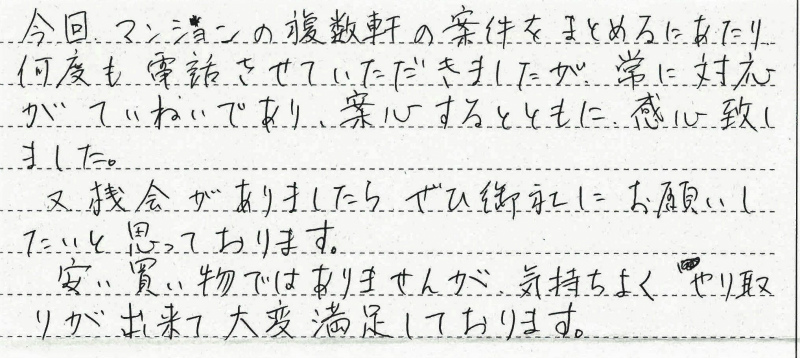 今回、マンションの複数軒の案件をまとめるにあたり、
何度も電話させていただきましたが、常に対応
がていねいであり、案心するとともに、感心致し
ました。
又機会がありましたらぜひ御社にお願いし
たいと思っております。
安い買い物ではありませんが、気持ちよくやり取
りが出来て大変満足しております。